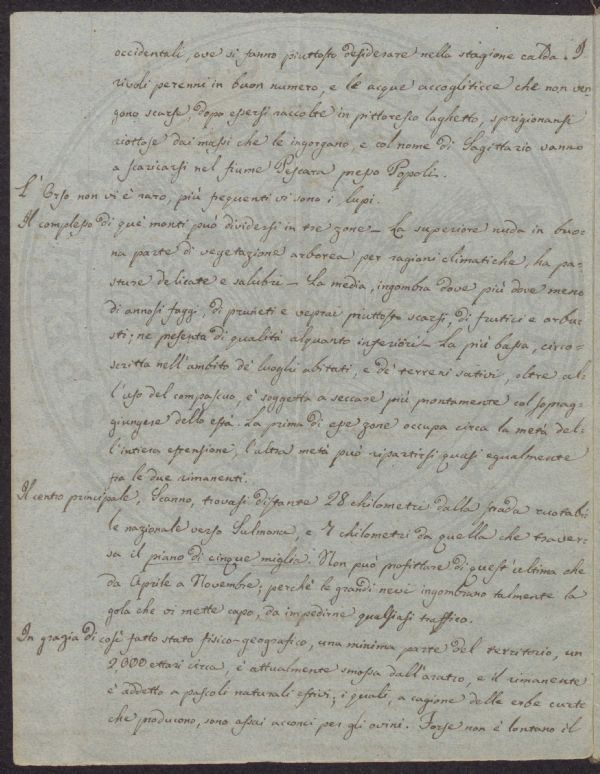 occidentali, ove si fanno piuttosto desiderare nella stagione calda. I
rivoli perenni in buon numero, e le acque accogliticce che non ven
gono scarse, dopo essersi raccolte in pittoresco laghetto, sprigionansi
riottose dai massi che le ingorgano, e col nome di Sagittario vanno
a scaricarsi nel fiume Pescara presso Popoli.
L'Orso non vi è raro, più frequenti vi sono i lupi.
Il complesso di que' monti può dividersi in tre zone – La superiore nuda in buo-
na parte di vegetazione arborea per ragioni climatiche, ha pa-
sture delicate e salubri – La media, ingombra dove più dove meno
di annosi faggi, di pruneti e veprai piuttosto scarsi, di frutici e arbu-
sti; ne presenta di qualità alquanto inferiori – La più bassa, circo-
scritta nell'ambito de' luoghi abitati, e de' terreni sativi, oltre al-
l'uso del compascuo, è soggetta a seccare più prontamente col soprag-
giungere dello està. La prima di esse zone occupa circa la metà del-
l'intiera estensione, l'altra metà può ripartirsi quasi egualmente
fra le due rimanenti.
Il centro principale, Scanno, trovasi distante 28 chilometri dalla strada ruotabi-
le nazionale verso Sulmona, e 7 chilometri da quella che traver-
sa il piano di cinque miglia. Non può profittare di quest'ultima che
da Aprile a Novembre; perchè le grandi nevi ingombrano talmente la
gola che vi mette capo, da impedirne qualsiasi traffico.
In grazia di così fatto stato fisico-geografico, una minima parte del territorio, un
2000 ettari circa, è attualmente smossa dall'aratro, e il rimanente
è addetto a pascoli naturali estivi; i quali, a cagione delle erbe curte
che producono, sono assai acconci per gli ovini. Forse non è lontano il